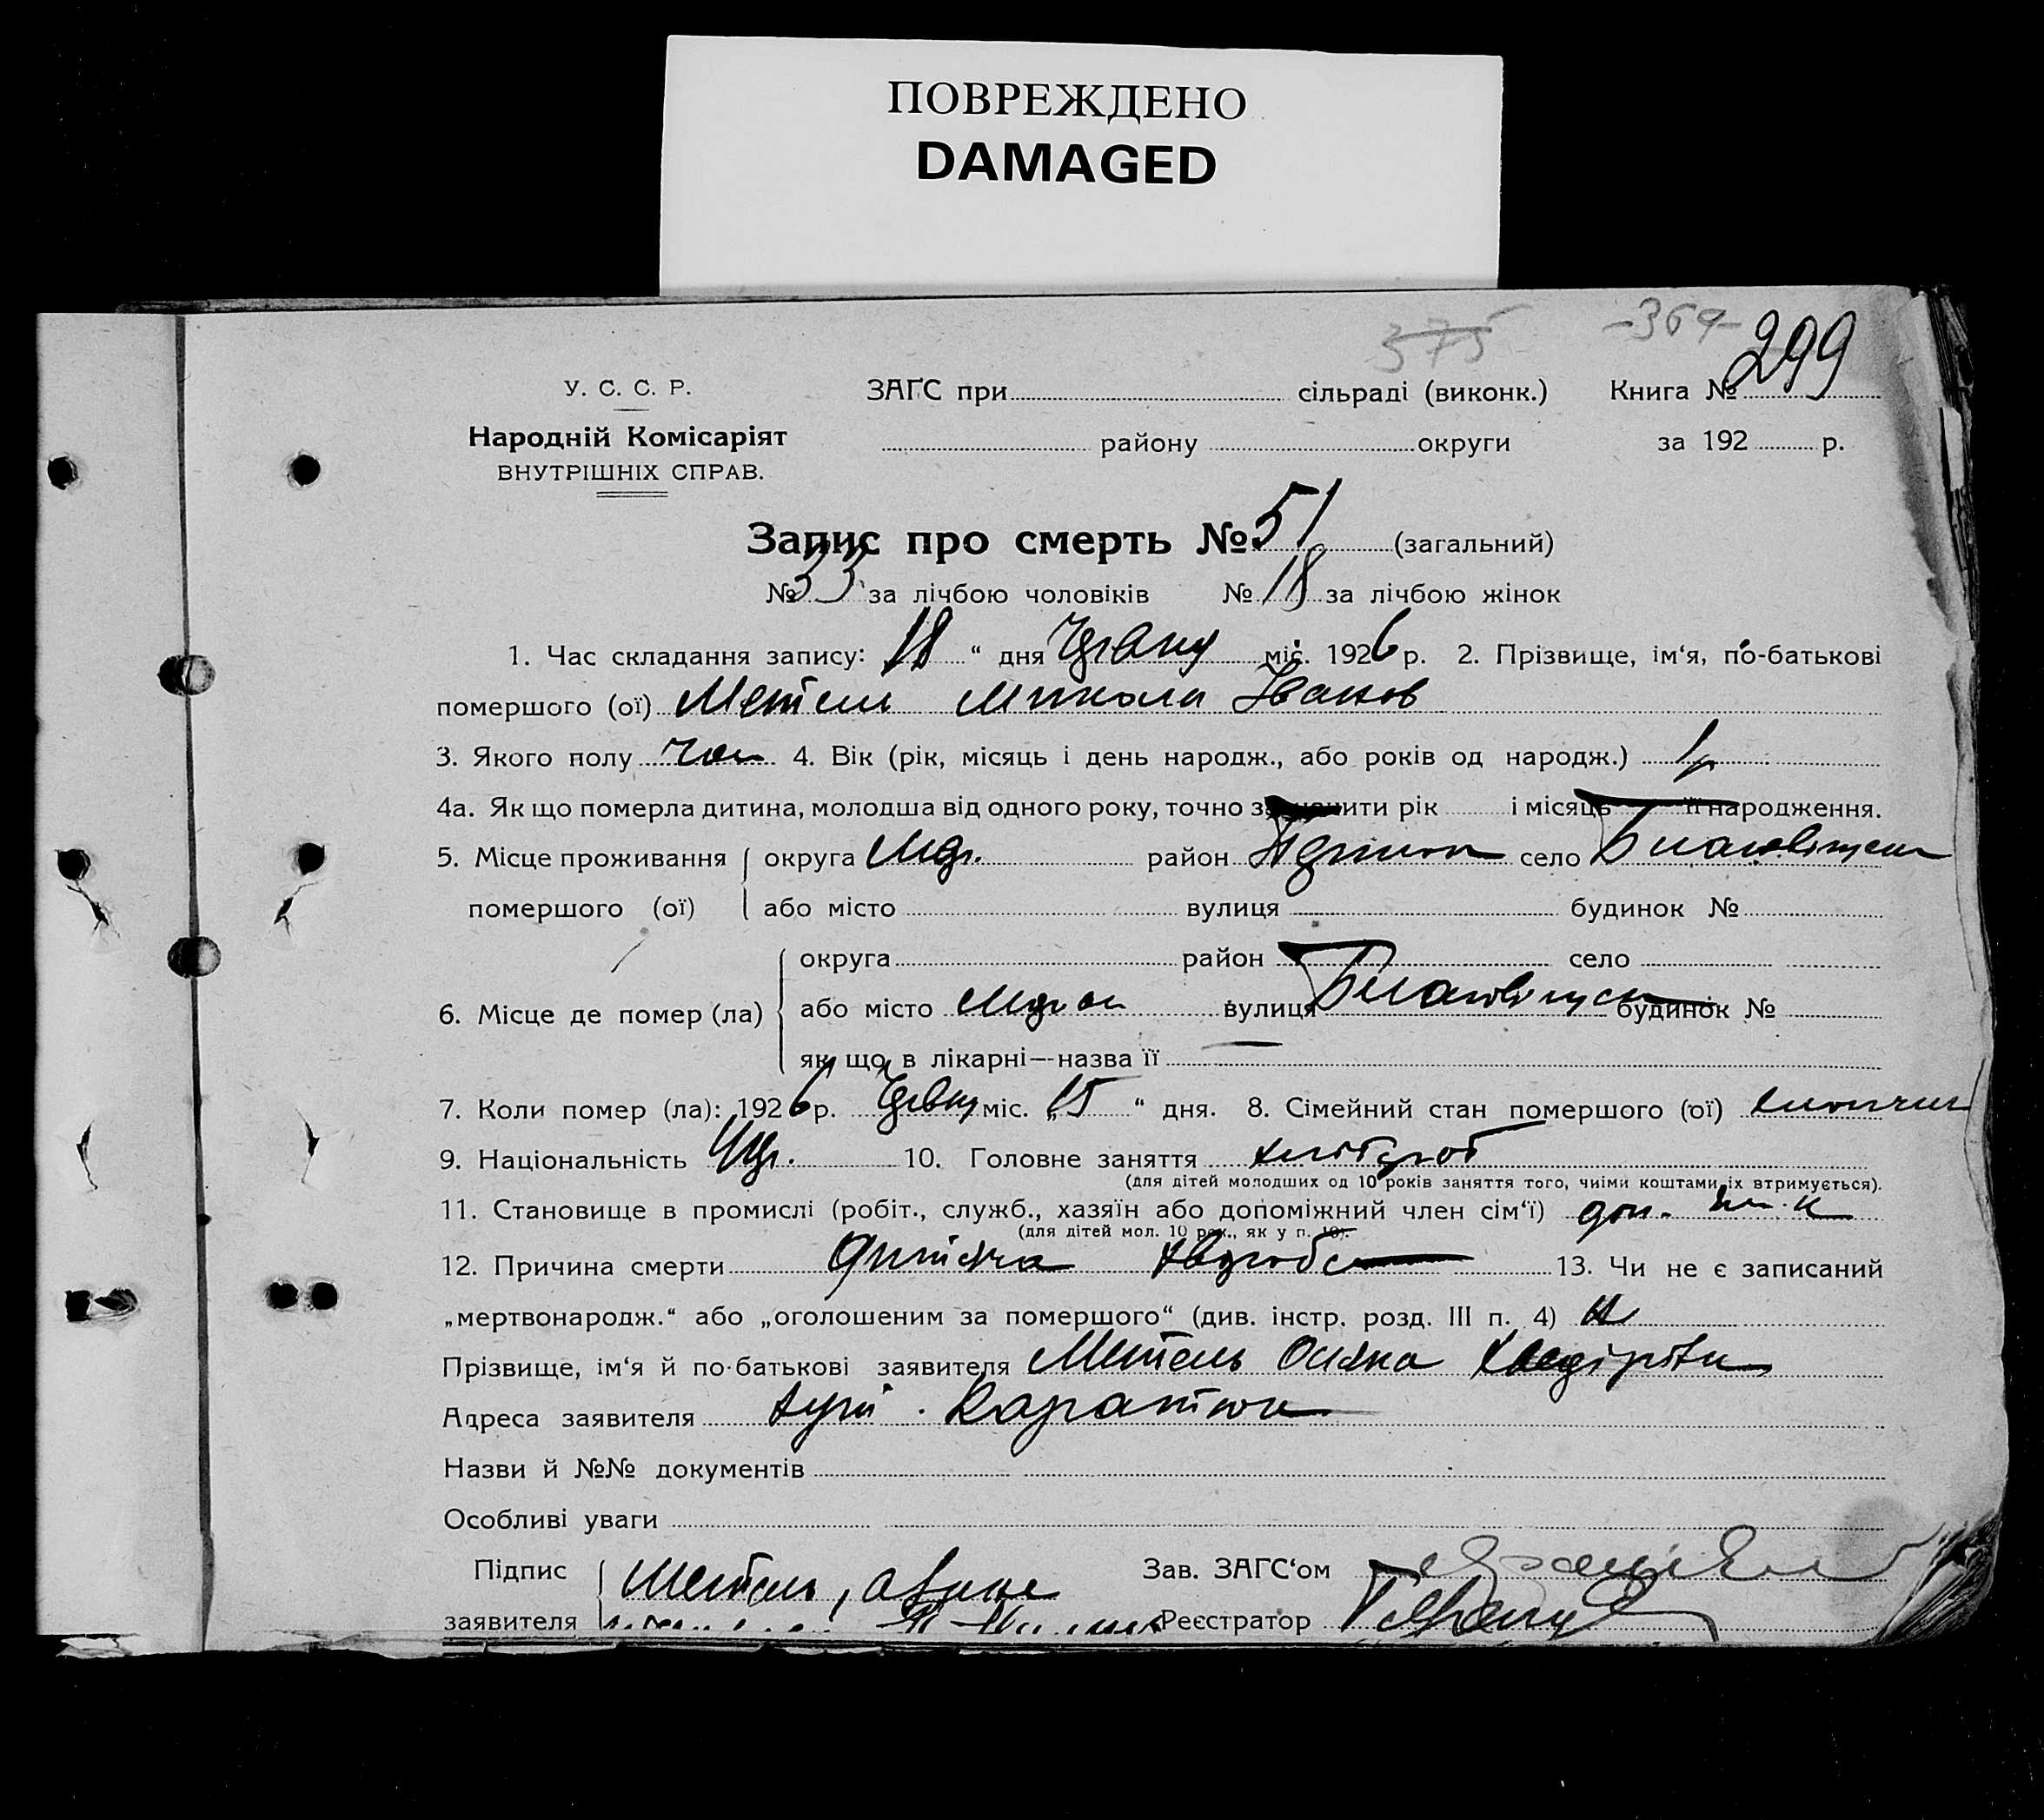 ПОВРЕЖДЕНО
DAMAGED
375 -369- 299
У. С. С. Р. ЗАҐС при сільраді (виконк.) Книга №
Народній Комісаріят
району округи за 192 р.
ВНУТРІШНІХ СПРАВ.
Запис про смерть № 51 (загальний)
№ 33 за лічбою чоловіків № 18 за лічбою жінок
1. Час складання запису: 18 “ дня Червня міс. 1926 р. 2. Прізвище, ім‘я, по-батькові
помершого (ої) Метель Микола Іванов
3. Якого полу чол 4. Вік (рік, місяць і день народж., або років од народж.) 1 р
4а. Як що померла дитина, молодша від одного року, точно зазначити рік і місяць її народження.
5. Місце проживання округа район село
помершого (ої) або місто вулиця будинок №
округа район село
6. Місце де помер (ла) або місто вулиця будинок №
як що в лікарні—назва її —
7. Коли помер (ла): 1926 р. Червн міс. „15 “ дня. 8. Сімейний стан помершого (ої)
9. Національність Укр. 10. Головне заняття хлібороб
(для дітей молодших од 10 років заняття того, чиїми коштами їх втримується).
11. Становище в промислі (робіт., служб., хазяїн або допоміжний член сім‘ї) доп.
(для дітей мол. 10 рок., як у п. 10).
12. Причина смерти Дитяча хвороба 13. Чи не є записаний
„мертвонародж.“ або „оголошеним за помершого“ (див. інстр. розд. III п. 4)
Прізвище, ім‘я й по-батькові заявителя Метель
Адреса заявителя хут.
Назви й №№ документів
Особливі уваги
Підпис Метель Зав. ЗАГС‘ом
заявителя Реєстратор